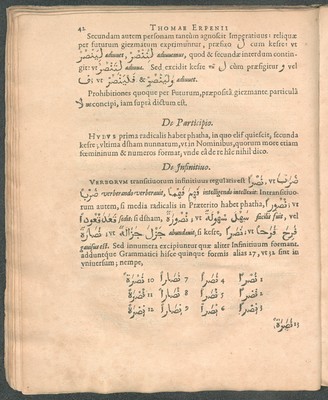 42 THOMAE ERPENII
Secundam autem personam tantùm agnoscit Imperatiuus: reliquæ
per futurum giezmatum exprimuntur, præfixo ل cum kesre: vt
لِيَنْصُرْ adiuuet, لِيَنْصُرُوا adiuuanto, quod & secundæ interdum contin-
git: vt لِتَنْصُرْ adiuua. Sed excidit kesre τῦ ل cùm præfigitur و vel
ف vt وَلْيَنْصُرْ & فَلْيَنْصُرْ adiuuet.
Prohibitiones quoque per Futurum, præpositâ giezmante particulâ
لا ne concipi, iam supra dictum est.
De Participio.
HVIVS prima radicalis habet phatha, in quo elif quiescit, secunda
kesre, vltima dsham nunnatum, vt in Nominibus, quorum more etiam
fœmininum & numeros format, vnde eâ de re hîc nihil dico.
De Infinitiuo.
VERBORVM transitiuorum infinitiuus regularis est نَصْرًا vt ضَرَبَ
ضَرْبًا verberando verberauit, فَهِمَ فَهْمًا intelligendo intellexit. Intransitiuo-
rum autem, si media radicalis in Præterito habet phatha, نُصُورًا, vt
قَعَدَ قُعُودًا sedit: si dsham, نُصُورَةً, vt سَهُلَ سُهُولَةً facilis fuit, vel
نَصَارَةً, vt جَزُلَ جَزَالَةً abundauit, si kesre, نَصَرًا, vt فَرِحَ فَرَحًا
gauisus est. Sed innumera excipiuntur quæ aliter Infinitiuum formant.
adduntque Grammatici hisce quinque formis alias 27, vt 32 sint in
vniuersum; nempe,
1 نَصْرًا 4 نَصَرًا 7 نَصَارًا 10 نَصْرَةً
2 نُصْرًا 5 نُصَرًا 8 نُصَارًا 11 نُصْرَةً
3 نِصْرًا 6 نِصَرًا 9 نِصَارًا 12 نِصْرَةً
13 نَصَرَةً